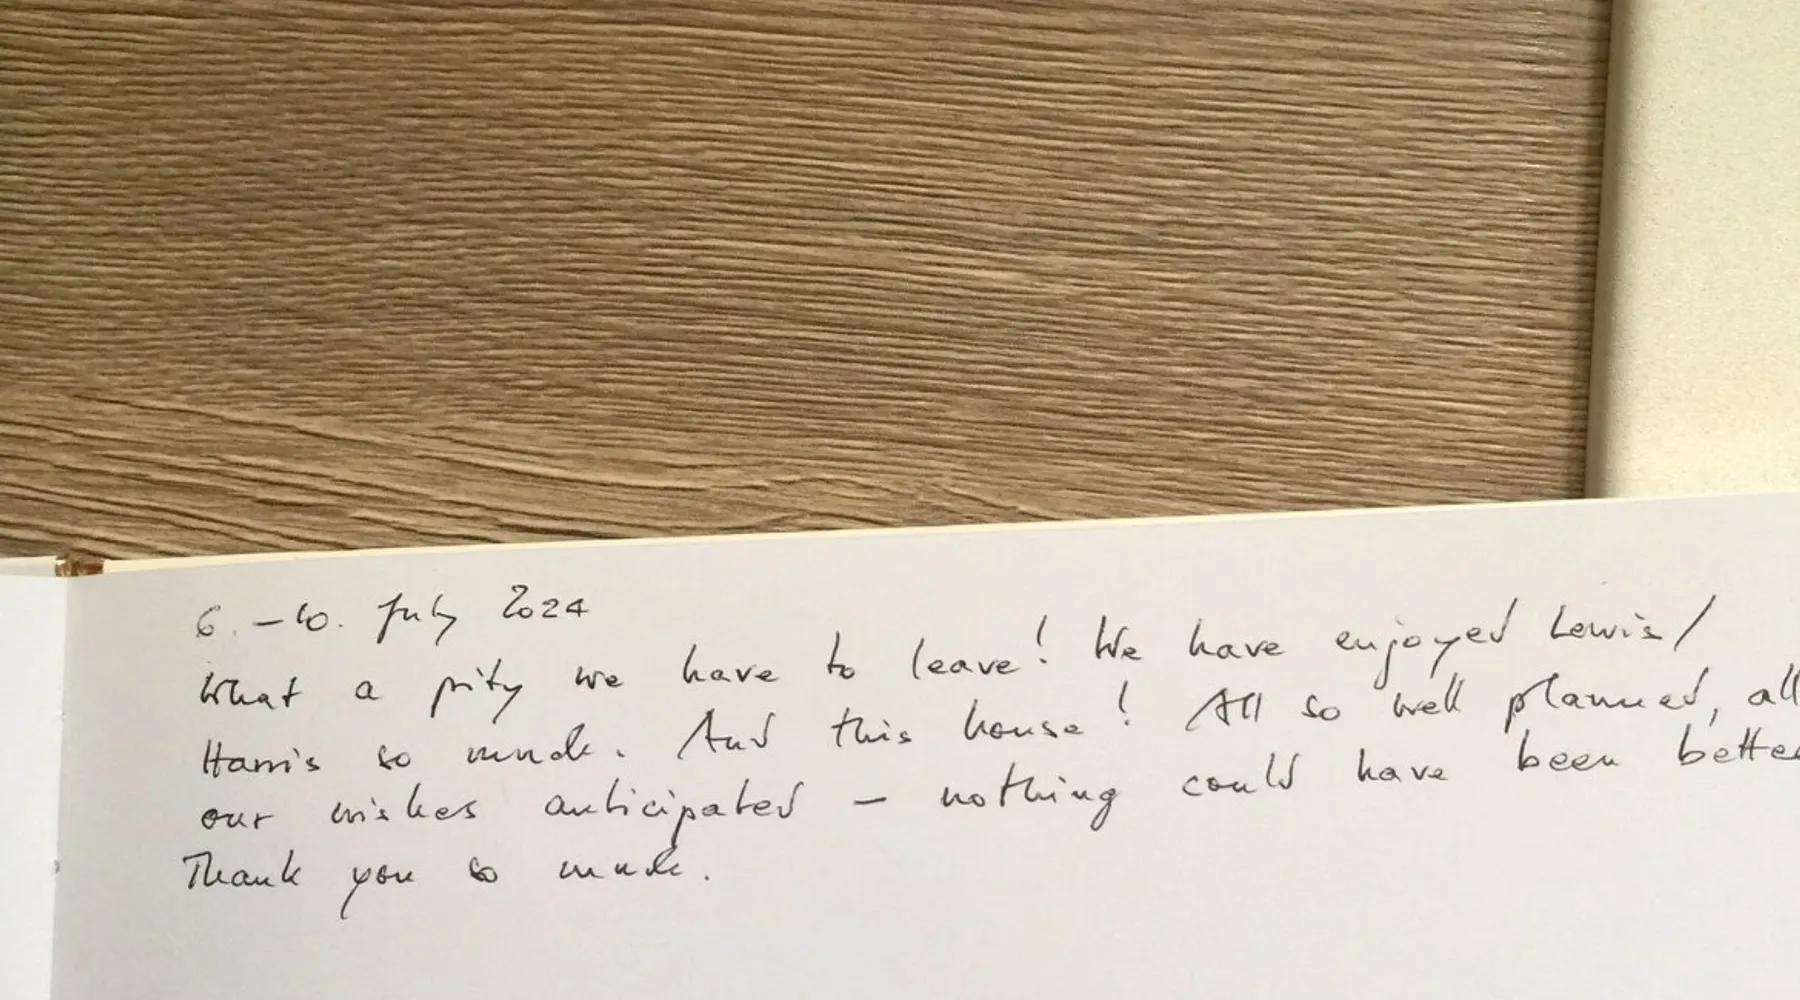 6. – 10. July 2024
What a pity we have to leave! We have enjoyed Lewis/
Harris so much. And this house! All so well planned, all
our wishes anticipated – nothing could have been better
Thank you so much.